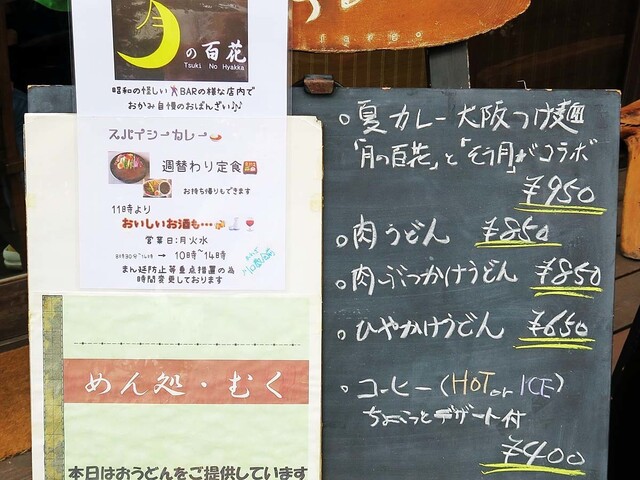 月の百花
Tsuki No Hyakka
昭和の怪しいBARの様な店内で
おかみ自慢のおばんざい♪
スパイシーカレー
週替わり定食
お持ち帰りもできます
11時より
おいしいお酒も…
営業日:月火水
→ 10時~14時
まん延防止等重点措置の為
時間変更しております
めん処・むく
本日はおうどんをご提供しています
。夏カレー大阪つけ麺
「月の百花」と「そう月」がコラボ
¥950
。肉うどん ¥850
。肉ぶっかけうどん ¥850
。ひやかけうどん ¥650
。コーヒー(HOT or ICE)
ちょこっとデザート付
¥400